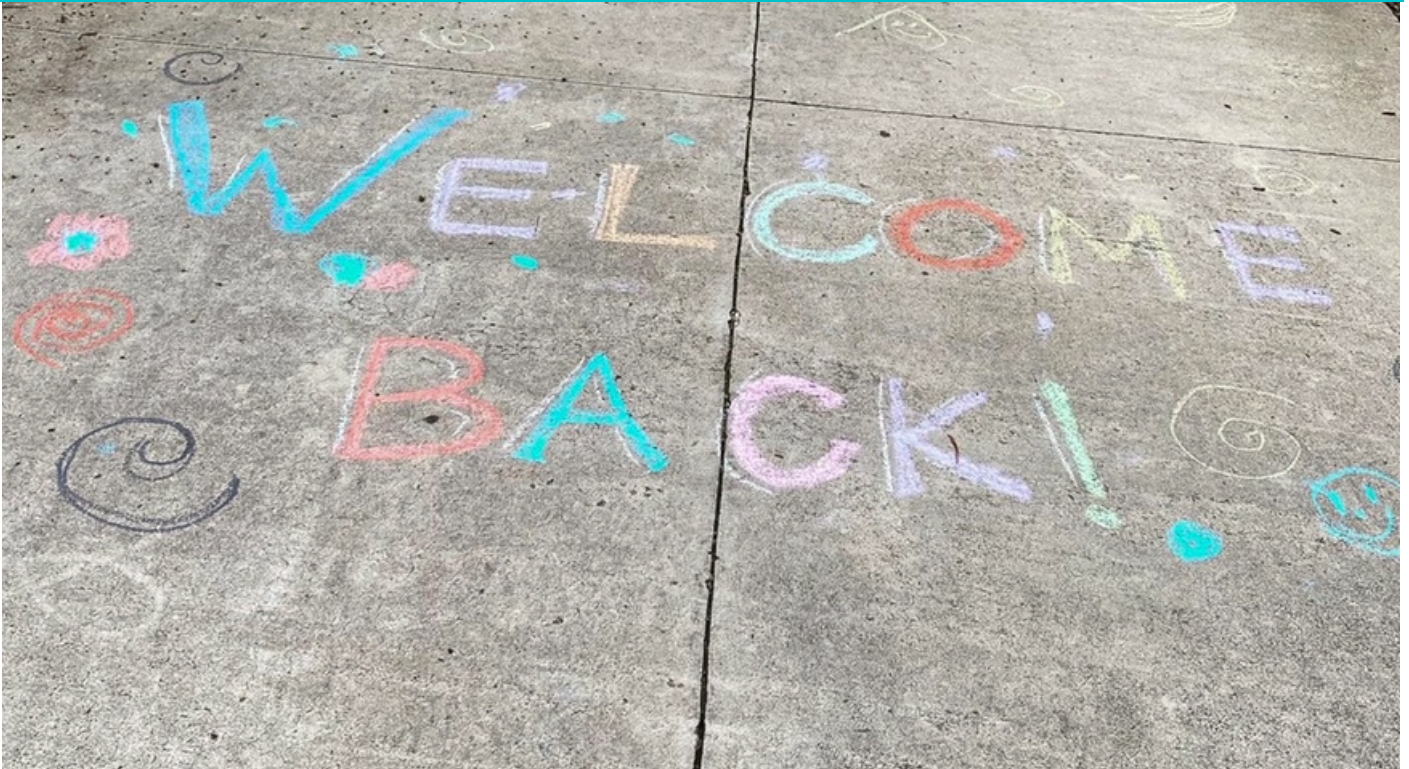 WELCOME
BACK!